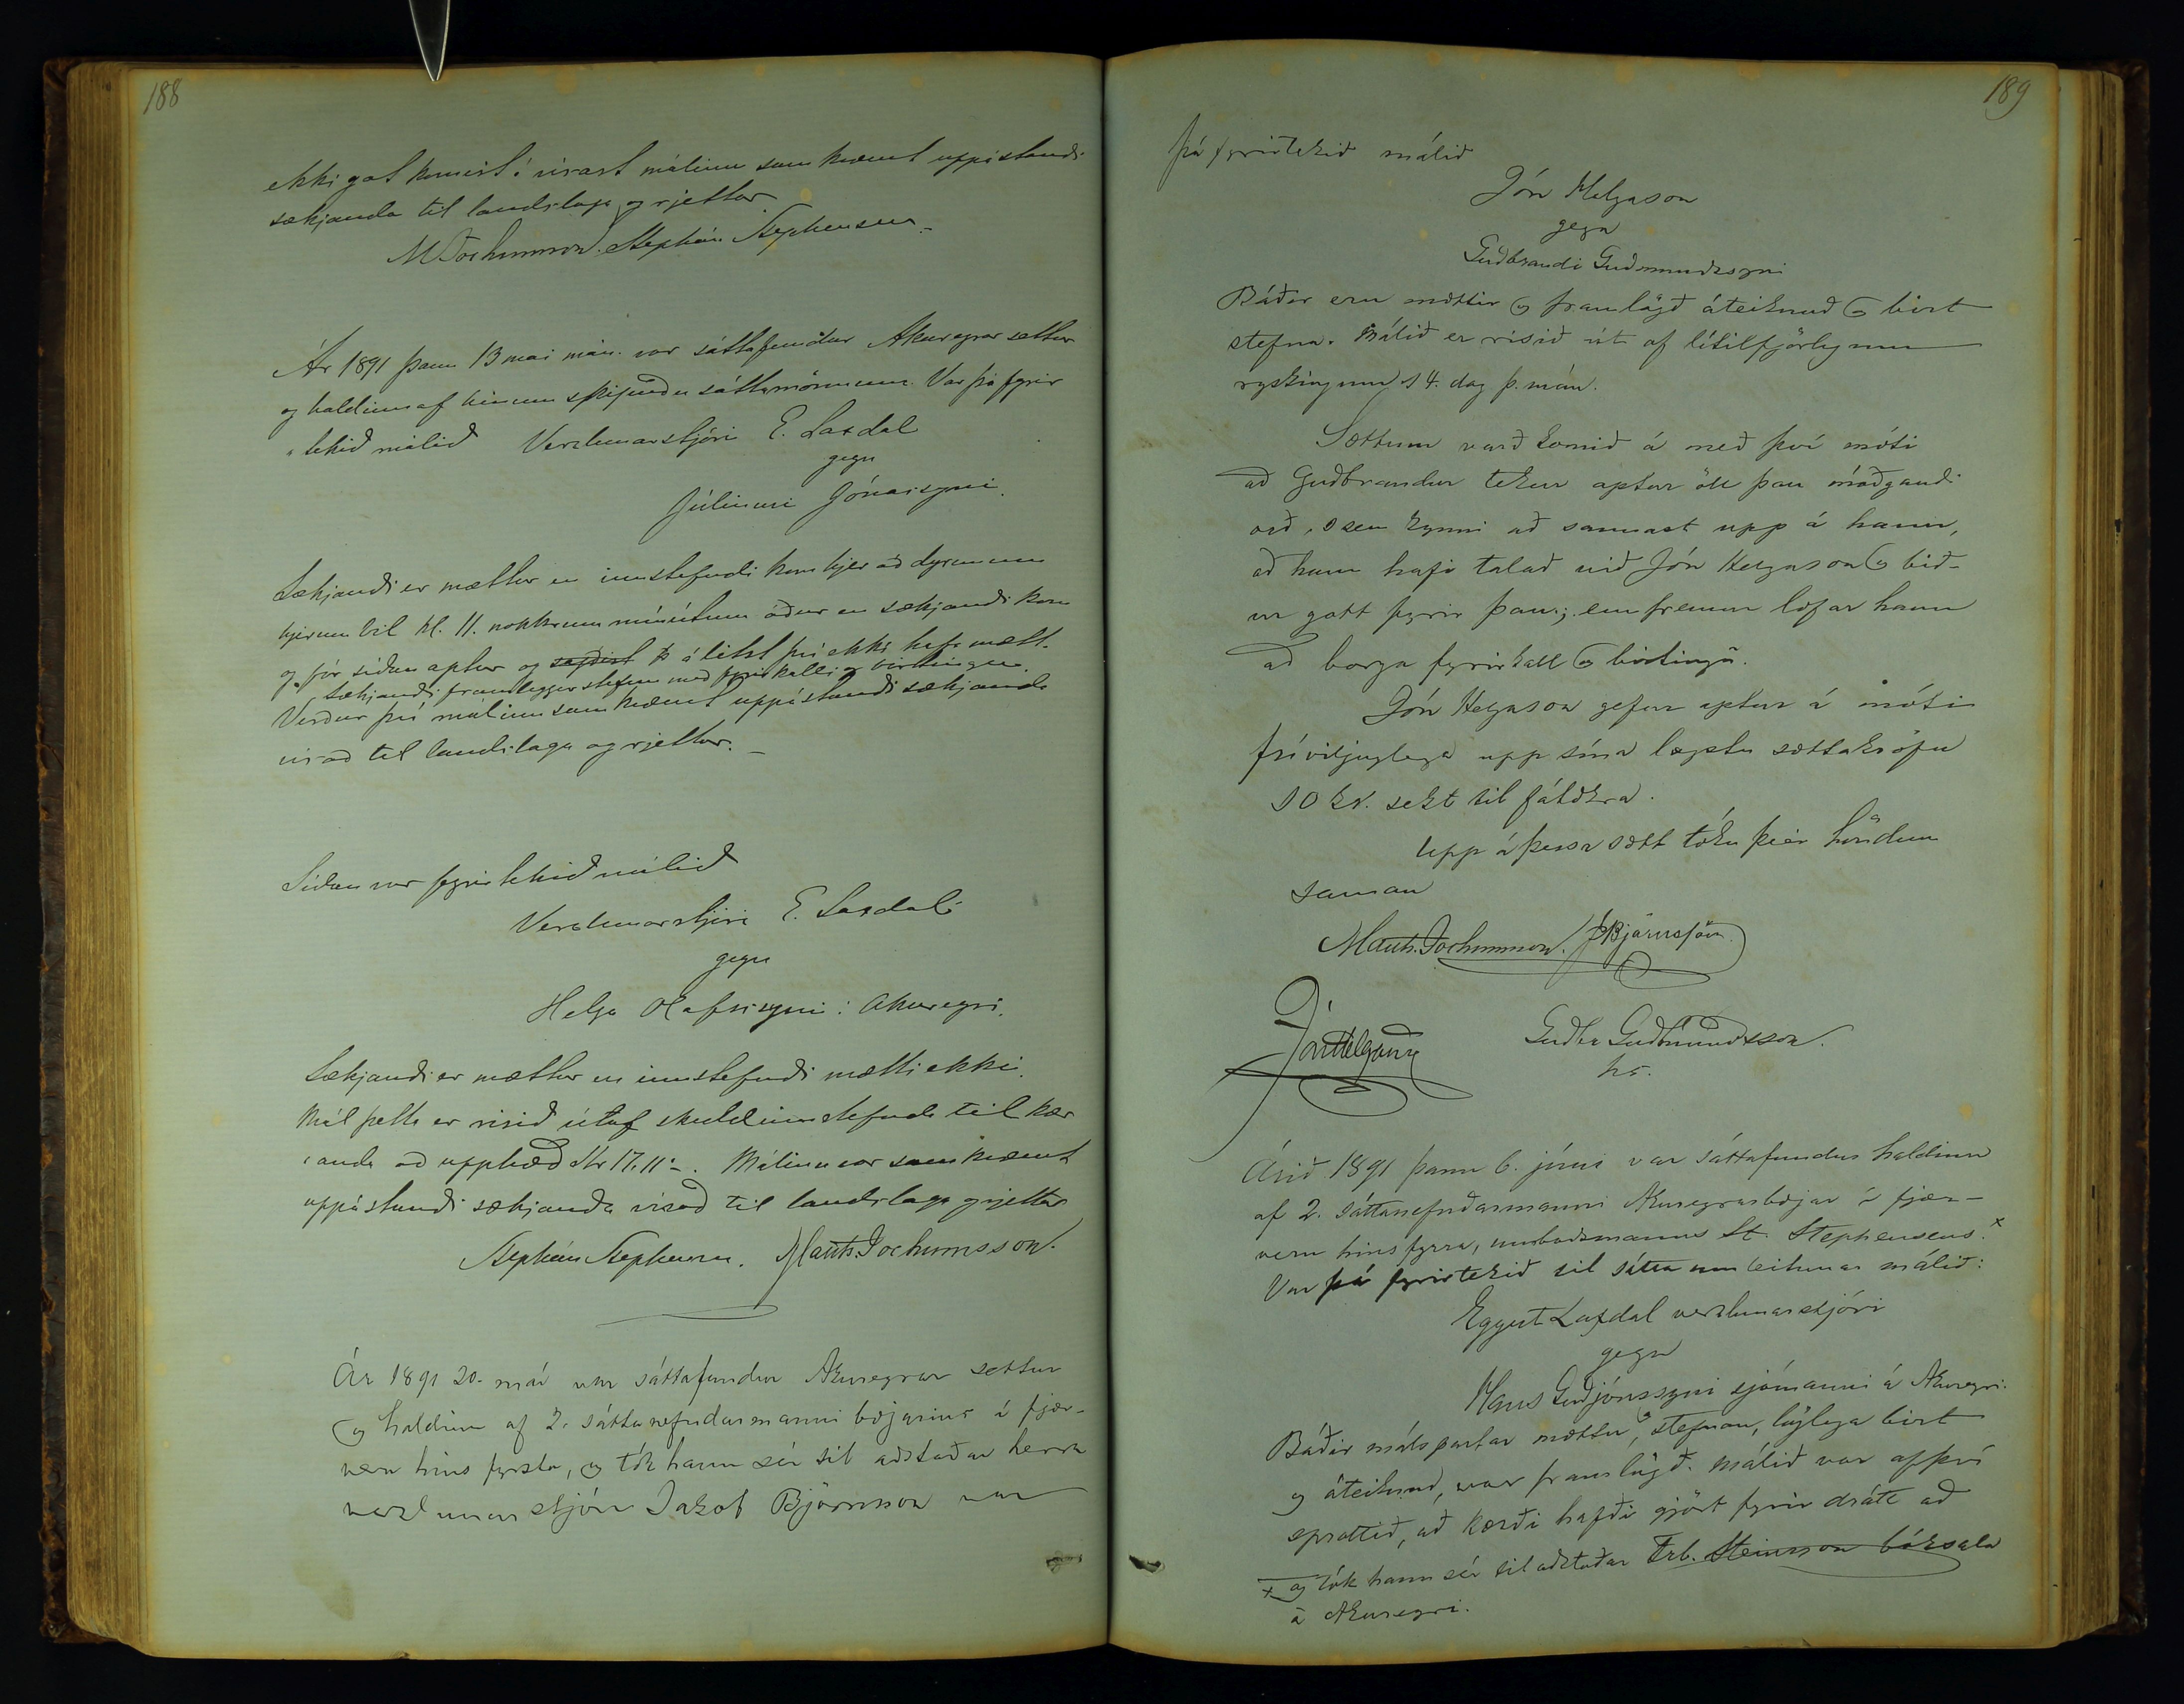 188
ekki gat komist á var málinu samkvæmt uppástandi
sækjanda til landslaga og rjettar.
M Jochumsson. Stephán Stephensen.
Ár 1891 þann 13 mai mán. var sáttafundur Akureyrar settur
og haldinn af hinum skipuðu sáttamönnum. Var þá fyrir
"tekið málið Verzlunarstjóri E. Laxdal
gegn
Júliusi Jónassyni.
Sækjandi er mættur en innstefndi kom hjer að dyrum um
hjerum bil kl. 11. nokkrum mínútum áður en sækjandi kom
og fór síðan aptur og sagðist álítst því ekki hafa mætt.
Sækjandi framleggur stefnu með fyrirkalli og birtingu.
Verður því málinu samkvæmt uppástandi sækjanda
vísað til landslaga og rjettar. _
Síðan var fyrirtekið málið
Verzlunarstjóri E. Laxdal
gegn
Helga Olafssyni í Akureyri.
Sækjandi er mættur en innstefndi mætti ekki.
Mál þetta er risið útaf skuld innstefnda til kær
"anda að upphæð Kr 17.11 -. Málinu var samkvæmt
uppástandi sækjanda vísað til landslaga og rjettar
Stephán Stephensen. Matth. Jochumsson.
Ár 1891 20. maí var sáttafundur Akureyrar settur
og haldinn af 2. sáttanefndarmanni bæjarins í fjær-
veru hins fyrsta, og tók hann sér til aðstoðar herra
verzlunarstjóra Jakob Björnsson var
189
þá fyrirtekið málið
Jón Helgason
gegn
Guðbrandi Guðmundssyni
Báðir eru mættir og framlögð áteiknuð og birt
stefna. Málið er risið út af lítilfjörlegum
ryskingum 14. dag þ. mán.
Sættum varð komið á með því móti
að Guðbrandur tekur aptur öll þau móðgandi
orð, sem kynni að sannast upp á hann,
að hann hafi talað við Jón Helgason og bið-
ur gott fyrir þau; enn fremur lofar hann
að borga fyrirkall og birtingu.
Jón Helgason gefur aptur á móti
fríviljuglega upp sína lægstu sættakröfu
10 kr. sekt til fátækra.
Upp á þessa sætt tóku þeir höndum
saman
Matth. Jochumsson. J Björnsson.
Jón Helgason Guðbr Guðmundsson.
hs.
Árið 1891 þann 6. júní var sáttafundur haldinn
af 2. sáttanefndarmanni Akureyrarbæjar í fjær-
veru hins fyrra, umboðsmanns St. Stephensens. x
Var þá fyrirtekið til sáttaumleitunar málið:
Eggert Laxdal verzlunarstjóri
gegn
Hans Guðjónssyni sjómanni á Akureyri.
Báðir málspartar mættu, og stefnan, löglega birt
og áteiknuð, var framlögð. Málið var af því
sprottið, að kærði hafði gjört fyrir drátt að
x og tók hann sér til aðstoðar Frb. Steinsson bóksala
á Akureyri.